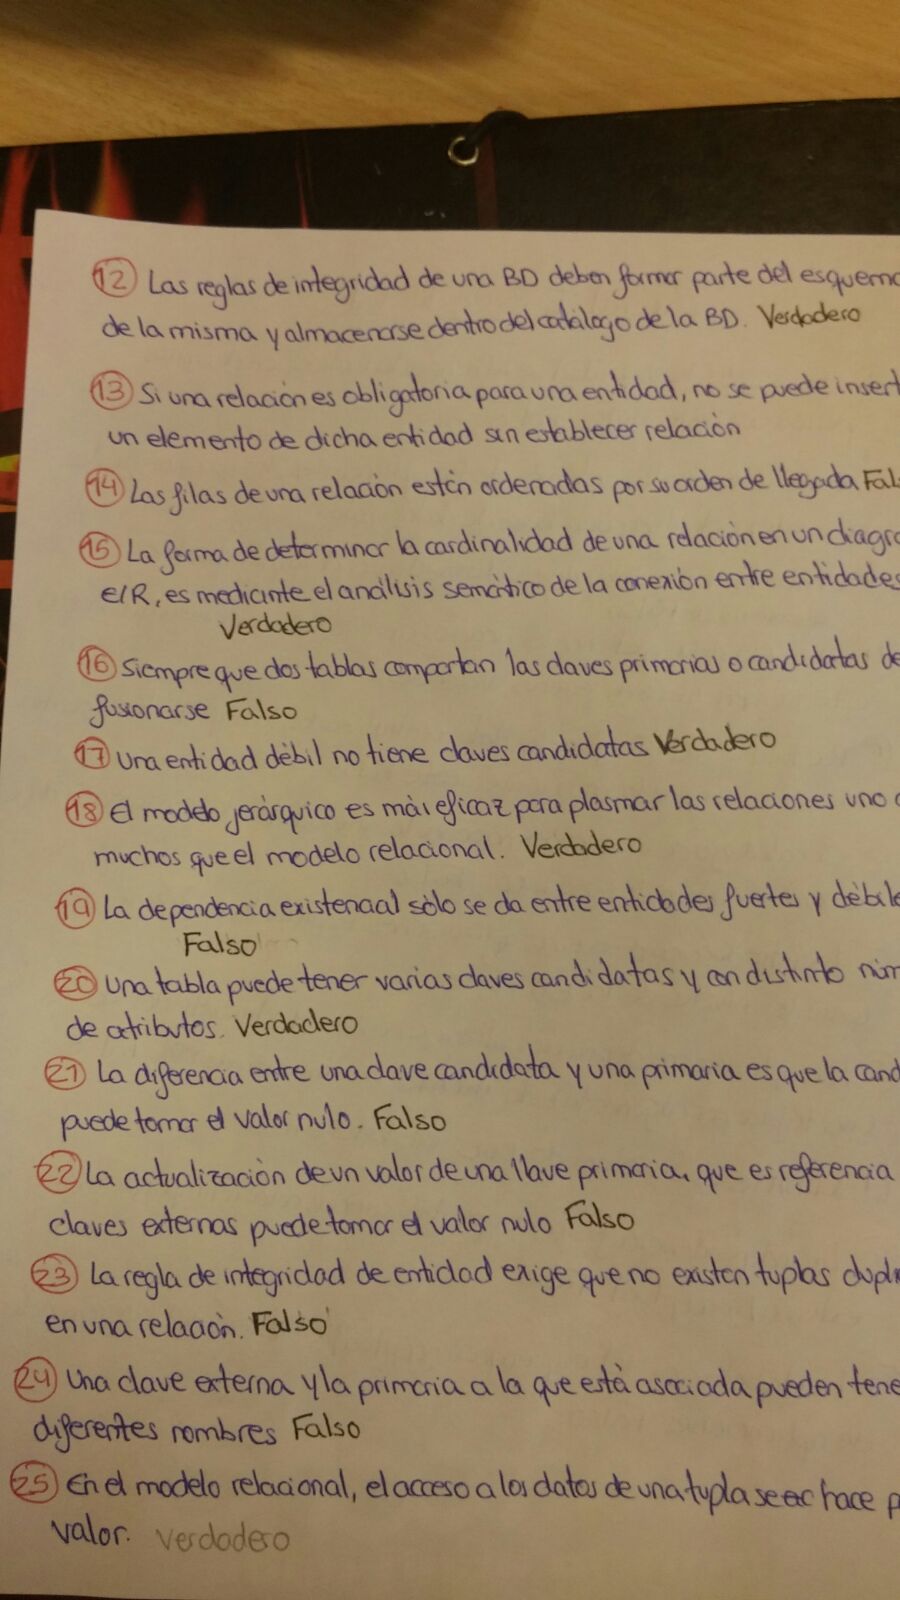 12 Las reglas de integridad de una BD deben formar parte del esquema
de la misma y almacenarse dentro del catálogo de la BD. Verdadero
13 Si una relación es obligatoria para una entidad, no se puede insert
un elemento de dicha entidad sin establecer relación
14 Las filas de una relación están ordenadas por su orden de llegada Fal
15 La forma de determinar la cardinalidad de una relación en un diagra
E/R, es mediante el análisis semántico de la conexión entre entidades
Verdadero
16 Siempre que dos tablas compartan las claves primarias o candidatas de
fusionarse Falso
17 Una entidad débil no tiene claves candidatas Verdadero
18 El modelo jerárquico es más eficaz para plasmar las relaciones uno a
muchos que el modelo relacional. Verdadero
19 La dependencia existencial sólo se da entre entidades fuertes y débile
Falso
20 Una tabla puede tener varias claves candidatas y con distinto núm
de atributos. Verdadero
21 La diferencia entre una clave candidata y una primaria es que la cand
puede tomar el valor nulo. Falso
22 La actualización de un valor de una llave primaria, que es referencia
claves externas puede tomar el valor nulo Falso
23 La regla de integridad de entidad exige que no existan tuplas dupli
en una relación. Falso
24 Una clave externa y la primaria a la que está asociada pueden tene
diferentes nombres Falso
25 En el modelo relacional, el acceso a los datos de una tupla se hace p
valor. Verdadero